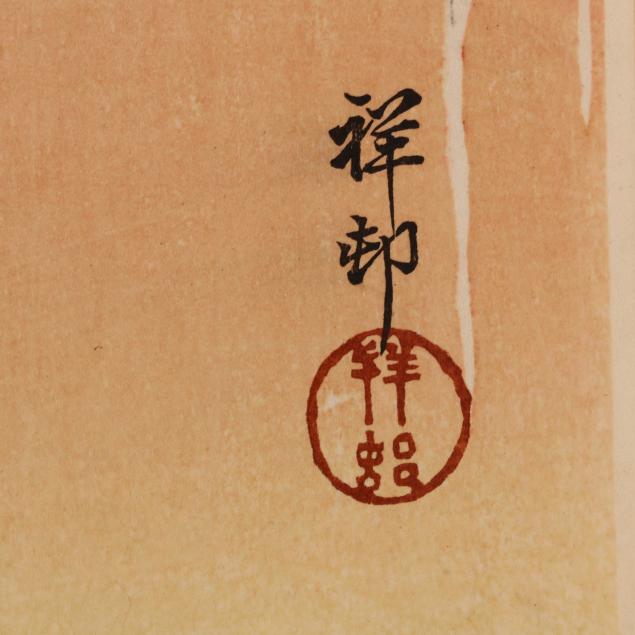 祥邨
祥邨